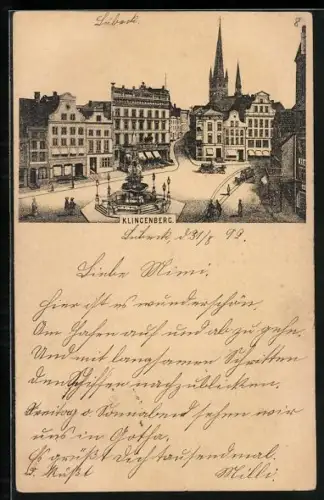 Lübeck.
8
KLINGENBERG.
Lübeck, d. 31/8 92.
Liebe Mimi.
Hier ist es wunderschön.
Am Hafen auf und ab zu gehn.
Und mit langsamen Schritten
den Schiffen nachzublicken.
Freitag o. Sonnabend sehen wir
uns in Gotha.
Es grüßt Dich tausendmal.
Milli.